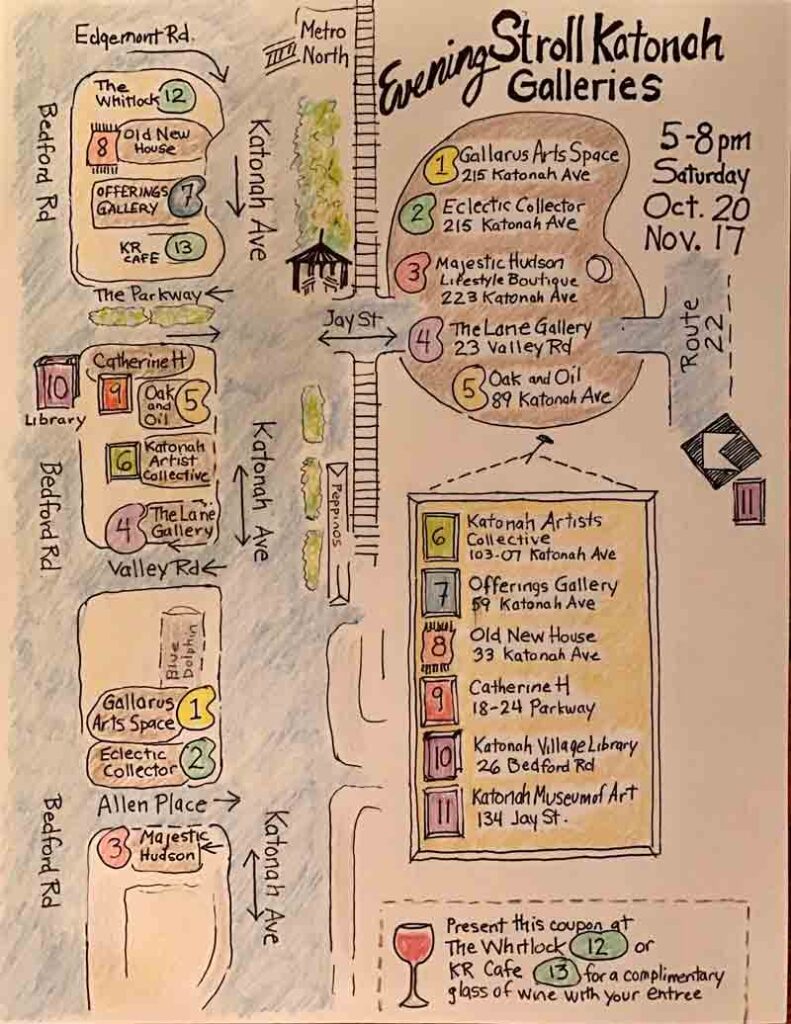 Edgemont Rd.
Metro
North
Evening Stroll Katonah
Galleries
5-8pm
Saturday
Oct. 20
Nov. 17
Bedford Rd
The
Whitlock 12
8 Old New
House
OFFERINGS 7
GALLERY
KR 13
CAFE
Katonah Ave
The Parkway
Jay St
1 Gallarus Arts Space
215 Katonah Ave
2 Eclectic Collector
215 Katonah Ave
3 Majestic Hudson
Lifestyle Boutique
223 Katonah Ave
4 The Lane Gallery
23 Valley Rd
5 Oak and Oil
89 Katonah Ave
Route
22
11
10
Library
Catherine H
9
Oak
and
Oil 5
6 Katonah
Artist
Collective
4 The Lane
Gallery
Bedford Rd.
Katonah Ave
Peppinos
Valley Rd
Blue
Dolphin
Gallarus
Arts Space 1
Eclectic
Collector 2
Allen Place
Bedford Rd
3 Majestic
Hudson
Katonah Ave
6 Katonah Artists
Collective
103-07 Katonah Ave
7 Offerings Gallery
59 Katonah Ave
8 Old New House
33 Katonah Ave
9 Catherine H
18-24 Parkway
10 Katonah Village Library
26 Bedford Rd
11 Katonah Museum of Art
134 Jay St.
Present this coupon at
The Whitlock 12 or
KR Cafe 13 for a complimentary
glass of wine with your entree